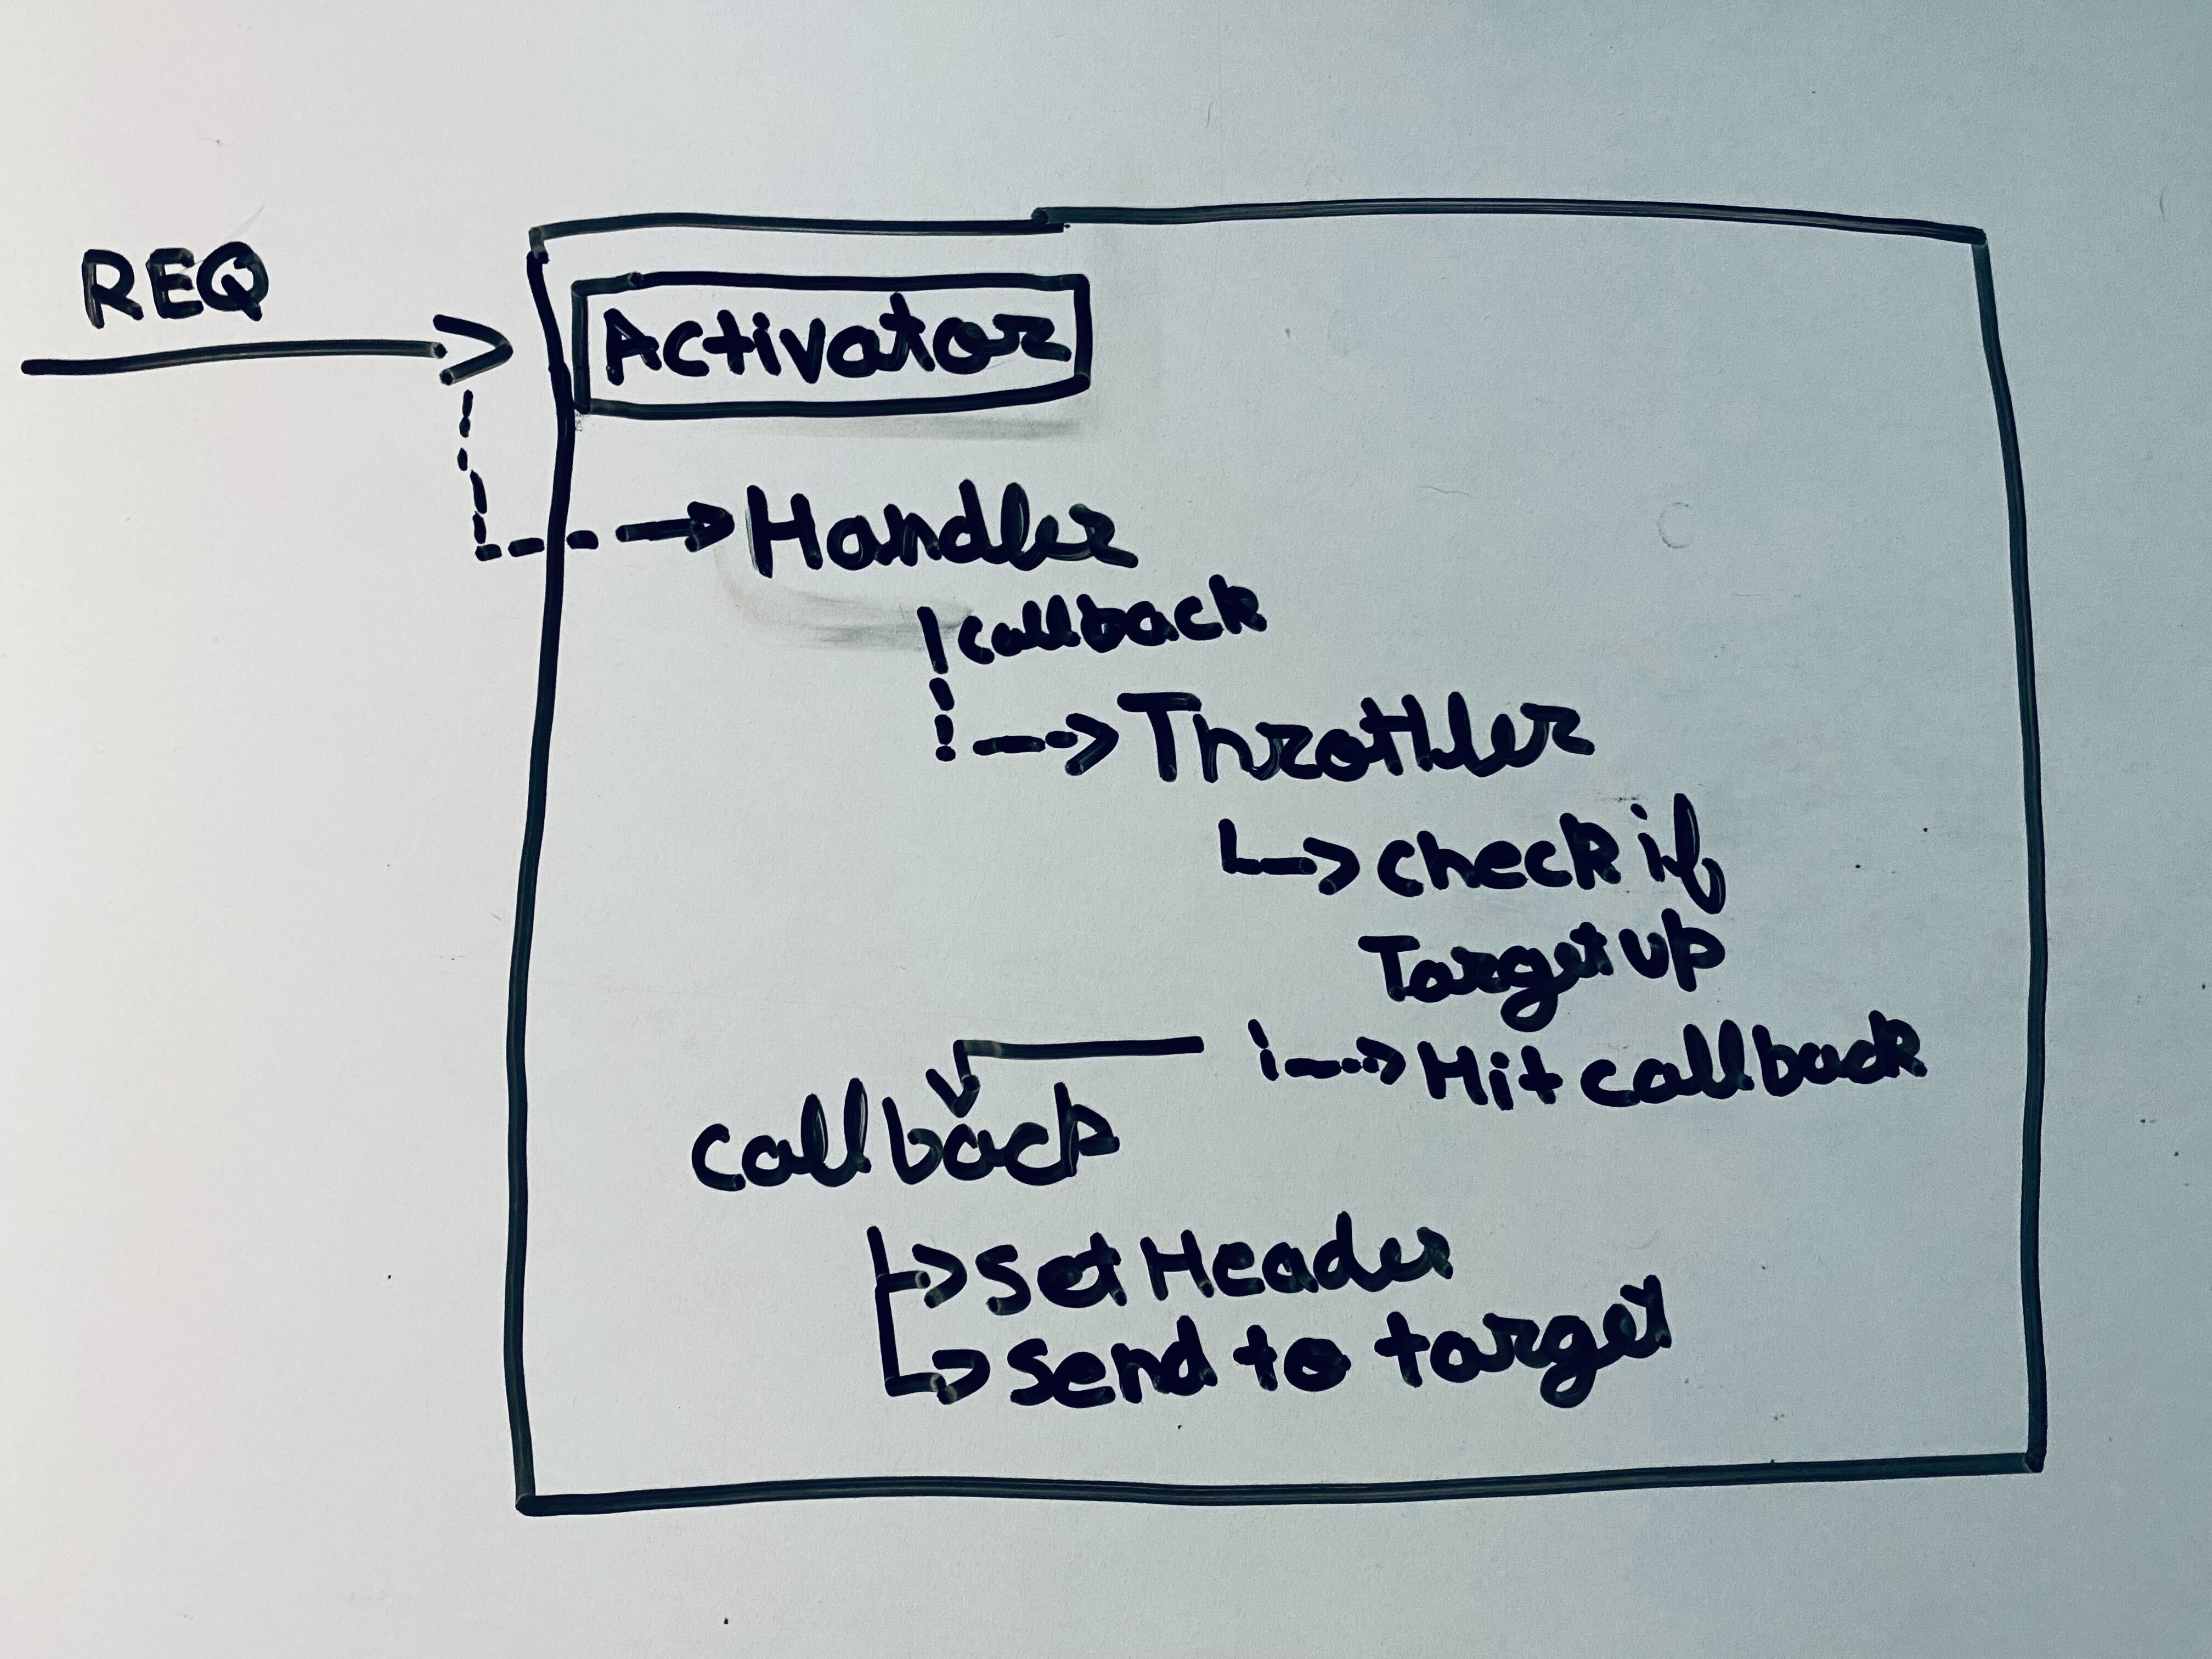 REQ
Activator
Handler
callback
Throttler
check if
Target up
Hit callback
callback
set Header
send to target